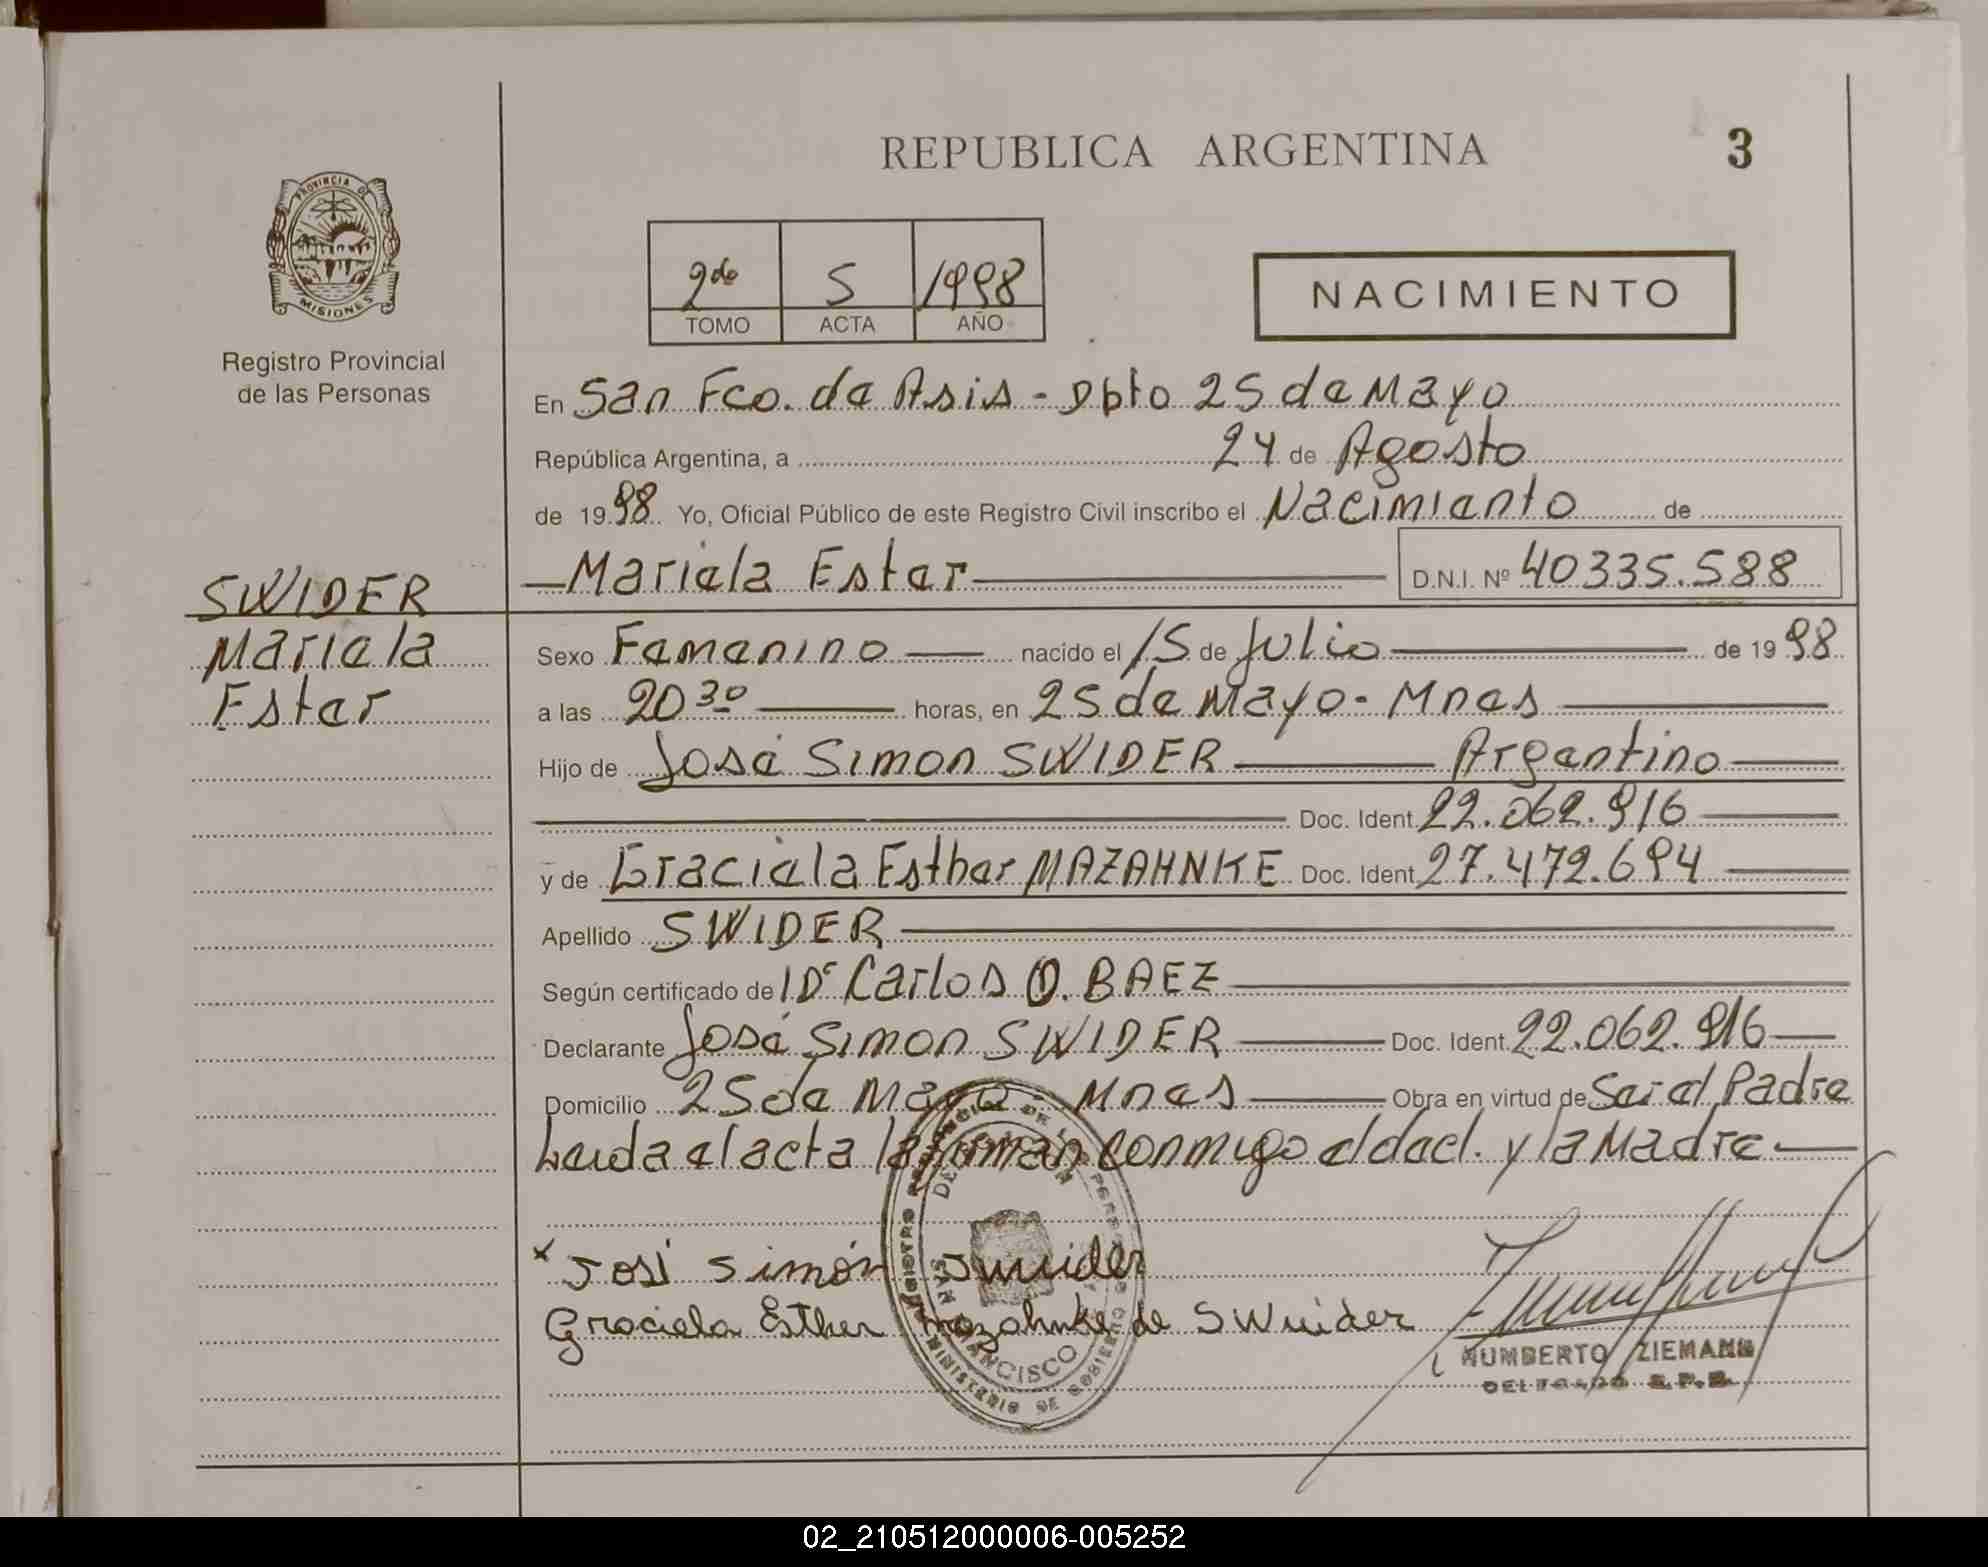 REPUBLICA ARGENTINA
3
PROVINCIA DE
MISIONES
Registro Provincial
de las Personas
2do 5 1998
TOMO ACTA AÑO
NACIMIENTO
En San Fco. de Asis - Dpto 25 de Mayo
República Argentina, a 24 de Agosto
de 1998 Yo, Oficial Público de este Registro Civil inscribo el Nacimiento de
Mariela Ester D.N.I. Nº 40335.588
SWIDER
Mariela
Ester
Sexo Femenino nacido el 15 de Julio de 1998
a las 20 30 horas, en 25 de Mayo - Mnes
Hijo de José Simon SWIDER Argentino
Doc. Ident. 22.062.916
y de Graciela Esther MAZAHNKE Doc. Ident. 27.472.694
Apellido SWIDER
Según certificado de Dr Carlos O. BAEZ
Declarante José Simon SWIDER Doc. Ident. 22.062.916
Domicilio 25 de Mayo - Mnes Obra en virtud de Ser el Padre
Leida el acta la firman conmigo el decl. y la Madre
x José Simón Swider
Graciela Esther Mazahnke de Swuider
REGISTRO PROVINCIAL DE LAS PERSONAS
DELEGACION
SAN FRANCISCO
MINISTERIO DE GOBIERNO
HUMBERTO ZIEMANN
DELEGADO R.P.P.
02_210512000006-005252